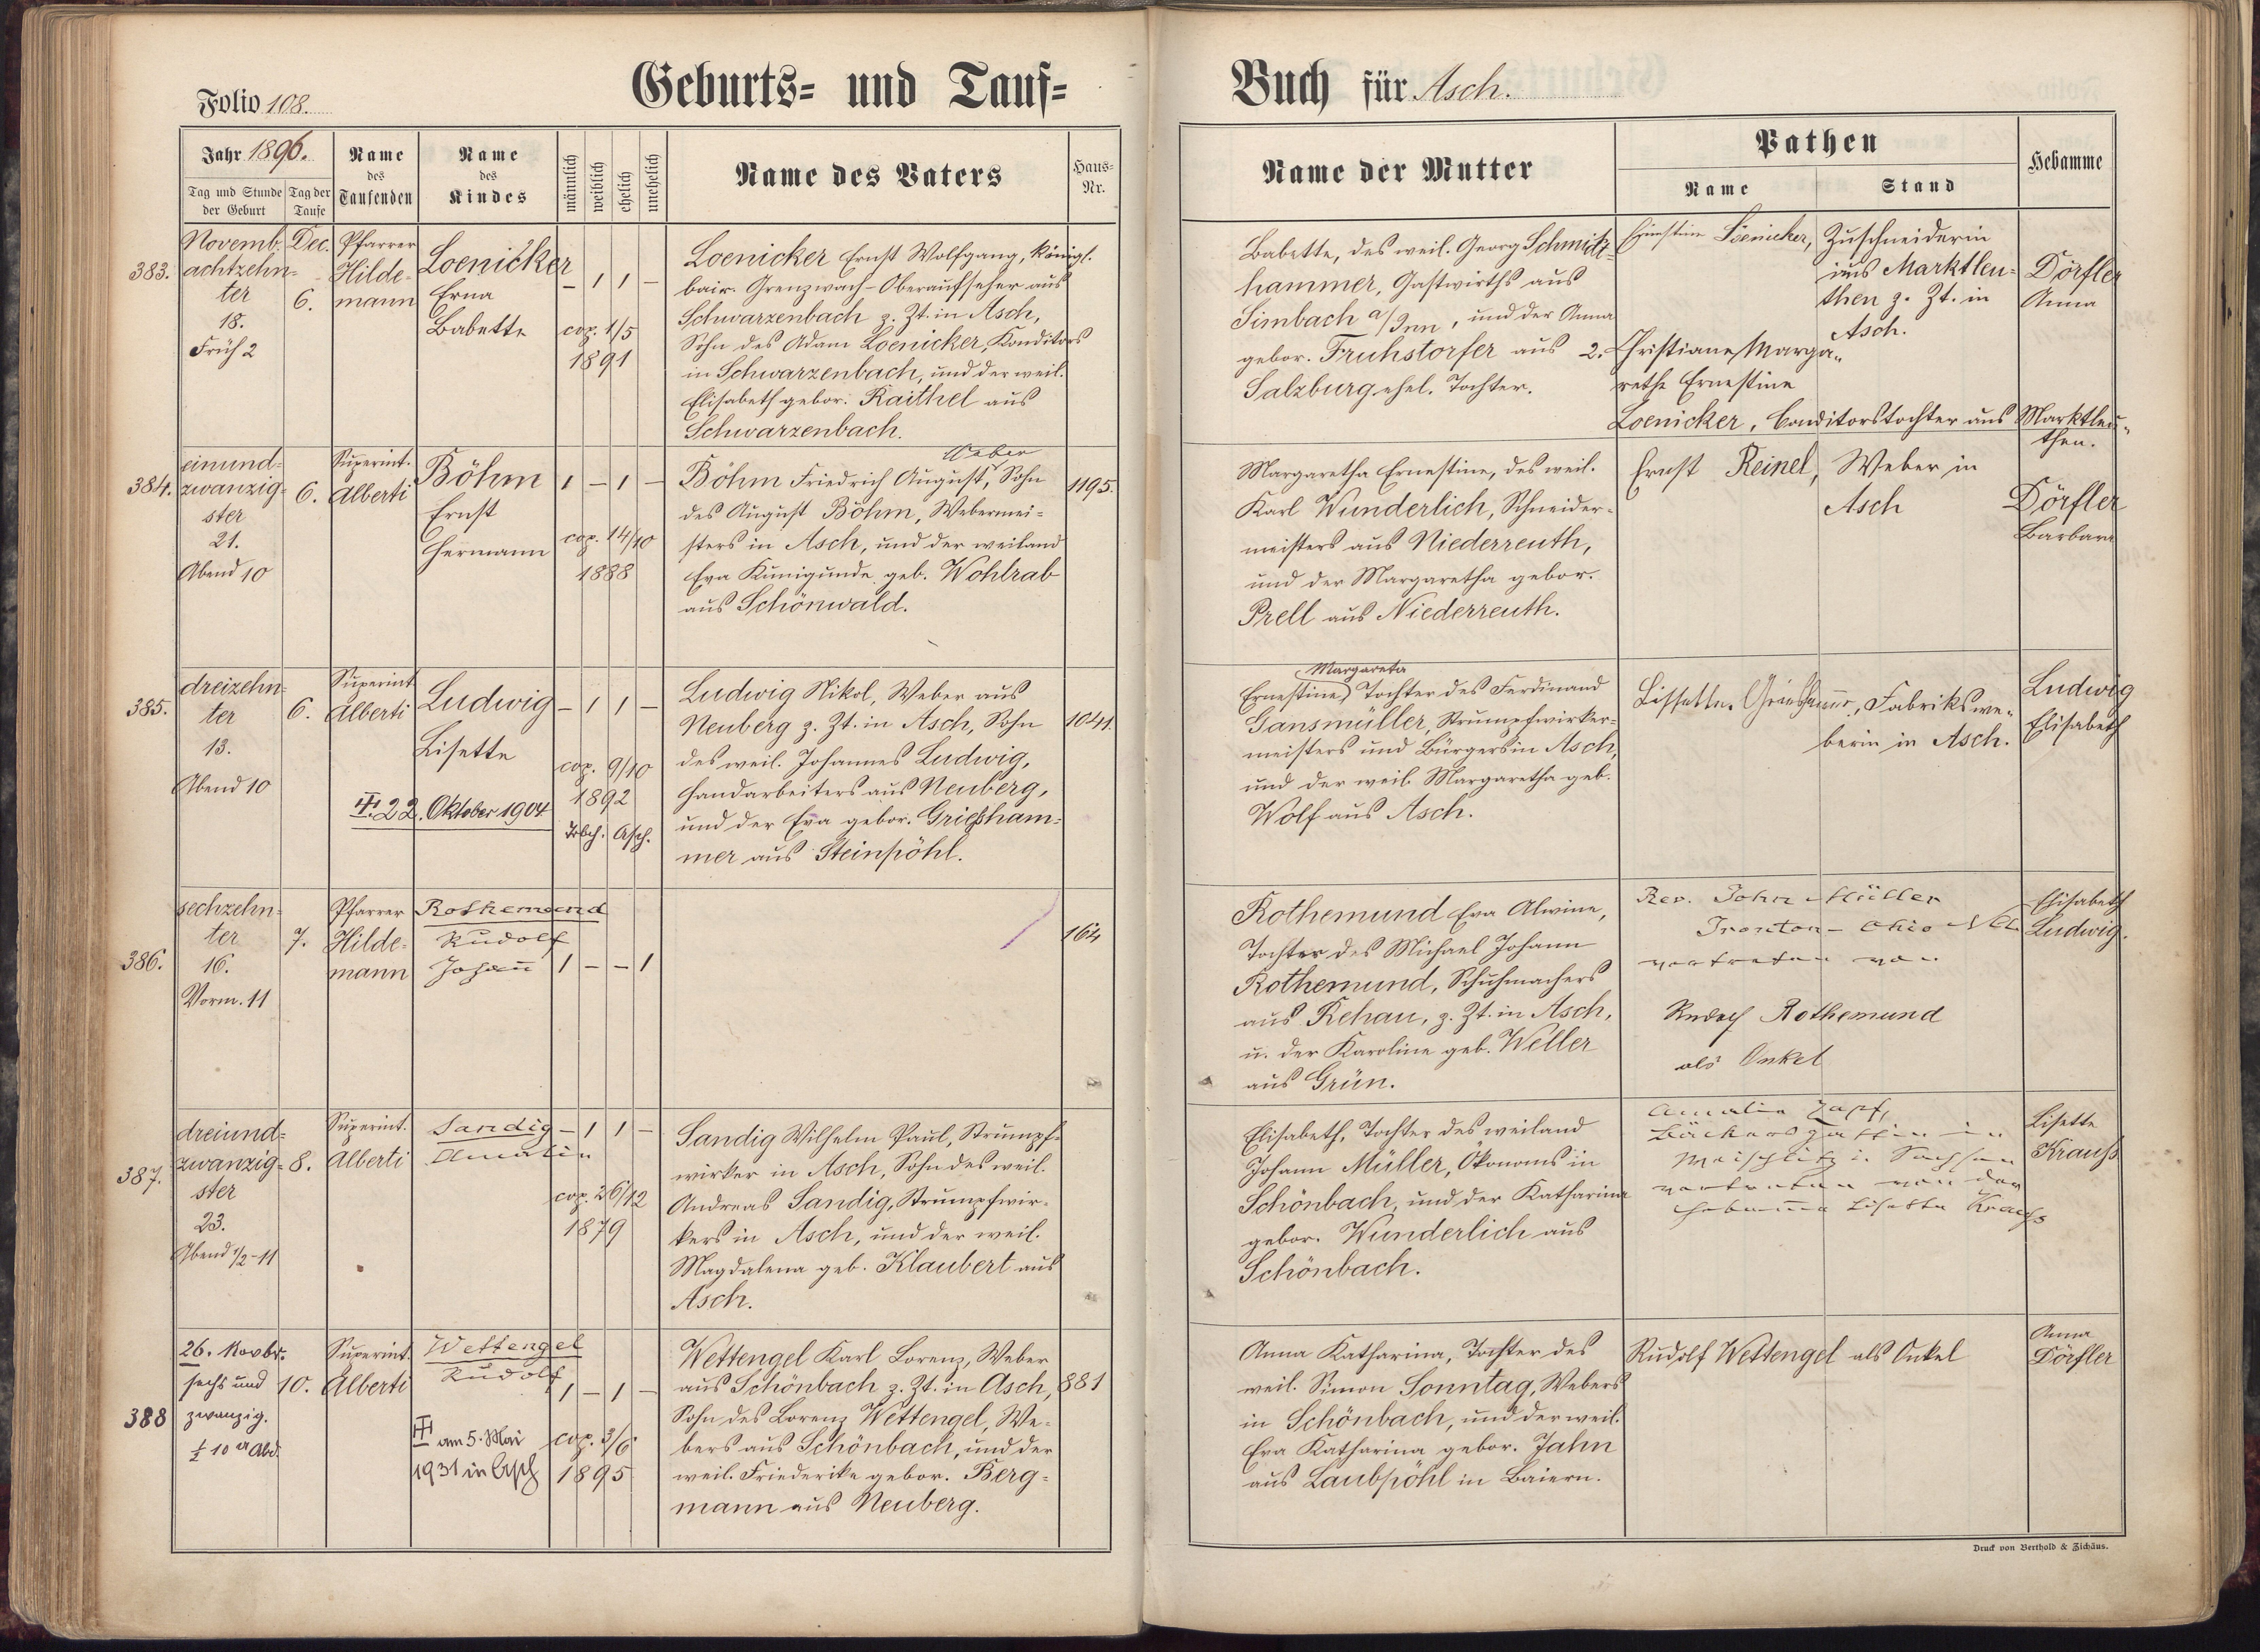 Geburts- und Tauf-
Buch für Asch.
Folio 108.
Jahr 1896.
Tag und Stunde der Geburt
Tag der Taufe
Name des Taufenden
Name des Kindes
männlich
weiblich
ehelich
unehelich
Name des Vaters
Haus-Nr.
Name der Mutter
Pathen
Name
Stand
Hebamme
383.
Novemb.
achtzehn-
ter
18.
Früh 2
Dec.
6.
Pfarrer
Hilde-
mann
Loenicker
Erna
Babette
– 1 1 –
cop. 1/5
1891
Loenicker Ernst Wolfgang, königl.
bair. Grenzwach-Oberaufseher aus
Schwarzenbach z. Zt. in Asch,
Sohn des Adam Loenicker, Konditors
in Schwarzenbach, und der weil.
Elisabeth gebor. Raithel aus
Schwarzenbach.
Babette, des weil. Georg Schmitz-
hammer, Gastwirths aus
Simbach a/Inn, und der Anna
gebor. Fruhstorfer aus
Salzburg ehel. Tochter.
Ernstine Loenicker,
Zuschneiderin
aus Marktleu-
then z. Zt. in
Asch.
2. Christiane Marga-
rethe Ernestine
Loenicker, Conditorstochter aus Marktleu-
then.
Dörfler
Anna
384.
einund-
zwanzig-
ster
21.
Abend 10
6.
Superint.
Alberti
Böhm
Ernst
Hermann
1 – 1 –
cop. 14/10
1888
Weber
Böhm Friedrich August, Sohn
des August Böhm, Webermei-
sters in Asch, und der weiland
Eva Kunigunde geb. Wohlrab
aus Schönwald.
1195.
Margaretha Ernestine, des weil.
Karl Wunderlich, Schneider-
meisters aus Niederreuth,
und der Margaretha gebor.
Prell aus Niederreuth.
Ernst Reinel,
Weber in
Asch
Dörfler
Barbara
385.
dreizehn-
ter
13.
Abend 10
6.
Superint
Alberti
Ludwig
Lisette
– 1 1 –
cop. 9/10
1892
22. Oktober 1904
Trbch. Asch.
Ludwig Nikol, Weber aus
Neuberg z. Zt. in Asch, Sohn
des weil. Johannes Ludwig,
Handarbeiters aus Neuberg,
und der Eva gebor. Grießham-
mer aus Steinpöhl.
1041.
Margareta
Ernestine, Tochter des Ferdinand
Gansmüller, Strumpfwirker-
meisters und Bürgers in Asch,
und der weil. Margaretha geb.
Wolf aus Asch.
Lissette
Fabrikswe-
berin in Asch.
Ludwig
Elisabeth
386.
sechzehn-
ter
16.
Vorm. 11
7.
Pfarrer
Hilde-
mann
Rothemund
Rudolf
Johann
1 – – 1
164
Rothemund Eva Alwine,
Tochter des Michael Johann
Rothemund, Schuhmachers
aus Rehau, z. Zt. in Asch,
u. der Karoline geb. Weller
aus Grün.
Rev. John Müller
Ironton – Ohio
vertreten von
Rudolf Rothemund
als Onkel
Elisabeth
Ludwig.
387.
dreiund-
zwanzig-
ster
23.
Abend 1/2-11
8.
Superint.
Alberti
Sandig
Amalie
– 1 1 –
cop. 26/12
1879
Sandig Wilhelm Paul, Strumpf-
wirker in Asch, Sohn des weil.
Andreas Sandig, Strumpfwir-
kers in Asch, und der weil.
Magdalena geb. Klaubert aus
Asch.
Elisabeth, Tochter des weiland
Johann Müller, Ökonoms in
Schönbach, und der Katharina
gebor. Wunderlich aus
Schönbach.
Amalie Zapf,
Bäckersgattin in
i. Sachsen
vertreten von der
Hebamme Lisette Krauss
Lisette
Krauß
388
26. Novbr.
sechs und
zwanzig.
½ 10 Abd.
10.
Superint.
Alberti
Wettengel
Rudolf
1 – 1 –
am 5. Mai
1931 in Asch
cop. 3/6
1895
Wettengel Karl Lorenz, Weber
aus Schönbach z. Zt. in Asch,
Sohn des Lorenz Wettengel, We-
bers aus Schönbach, und der
weil. Friederike gebor. Berg-
mann aus Neuberg.
881
Anna Katharina, Tochter des
weil. Simon Sonntag, Webers
in Schönbach, und der weil.
Eva Katharina gebor. Jahn
aus Laubpöhl in Baiern.
Rudolf Wettengel als Onkel
Anna
Dörfler
Druck von Berthold & Zichäus.